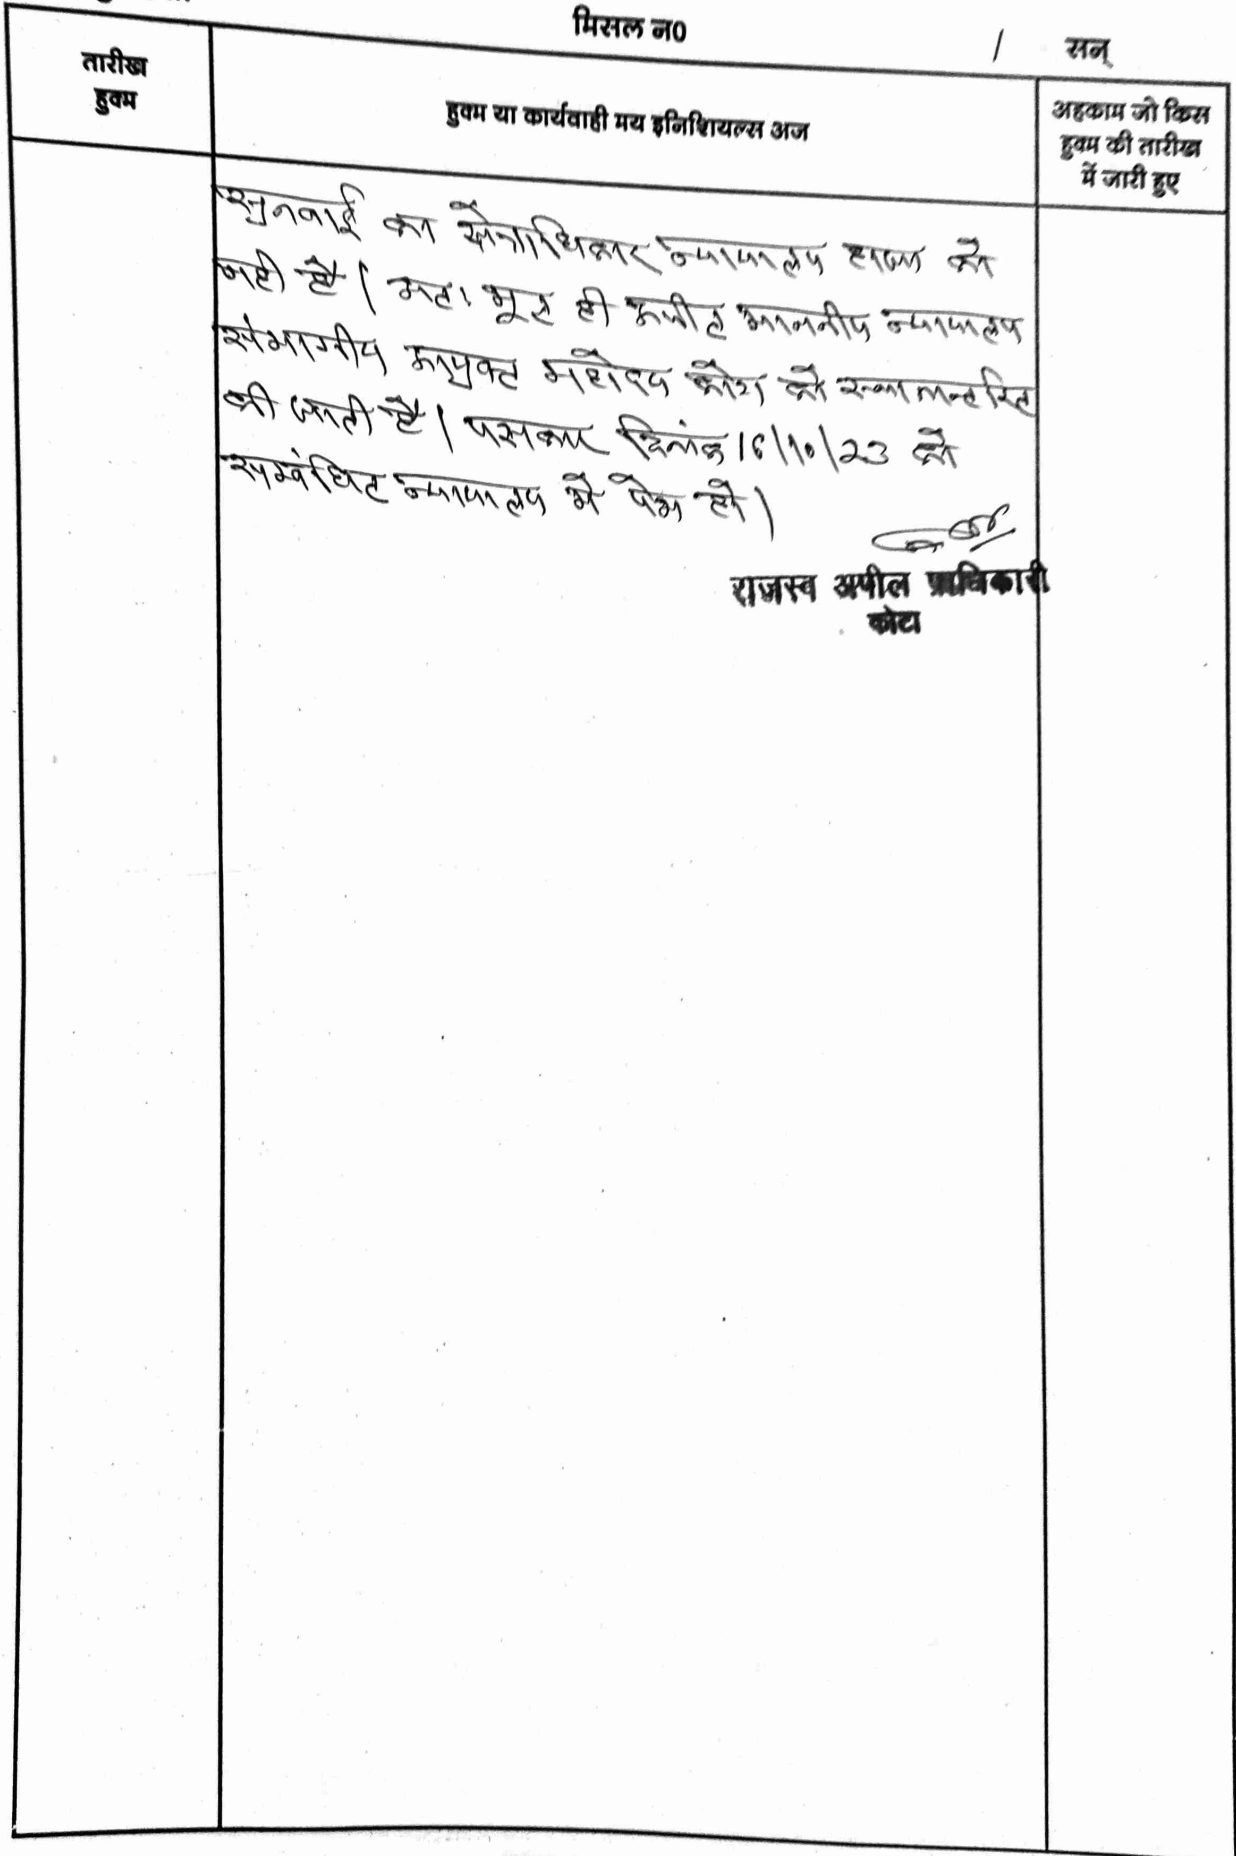 मिसल न0 / सन्
तारीख
हुक्म
हुक्म या कार्यवाही मय इनिशियल्स अज
अहकाम जो किस
हुक्म की तारीख
में जारी हुए
सुनवाई का क्षेत्राधिकार न्यायालय हाजा को
नही है। अतः मूल ही अपील माननीय न्यायालय
संभागीय आयुक्त महोदय कोटा को स्थानान्तरित
की जाती है। पक्षकार दिनांक 16/10/23 को
सम्बंधित न्यायालय मे पेश हो।
राजस्व अपील प्राधिकारी
कोटा